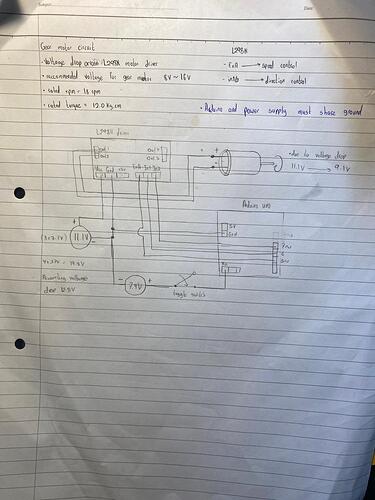 Gear motor circuit
• Voltage drop across L298N motor driver
• recommended voltage for gear motor 8V ~ 16V
• rated rpm = 18 rpm
• rated torque = 12.0 Kg.cm
L298N
- EnA → speed control
- in1/2 → direction control
• Arduino and power supply must share ground
L298N driver
Out 1
Out 2
Out 3
12v Gnd +5V
EnA In1 In2
+
-
• due to voltage drop
11.1V → 9.1V
Arduino UNO
5V
Gnd
+
11.1V
-
(3×3.7V)
4×3.7V = 14.8V
Preventing voltage
drop 12.8V
- 7.4V +
toggle switch